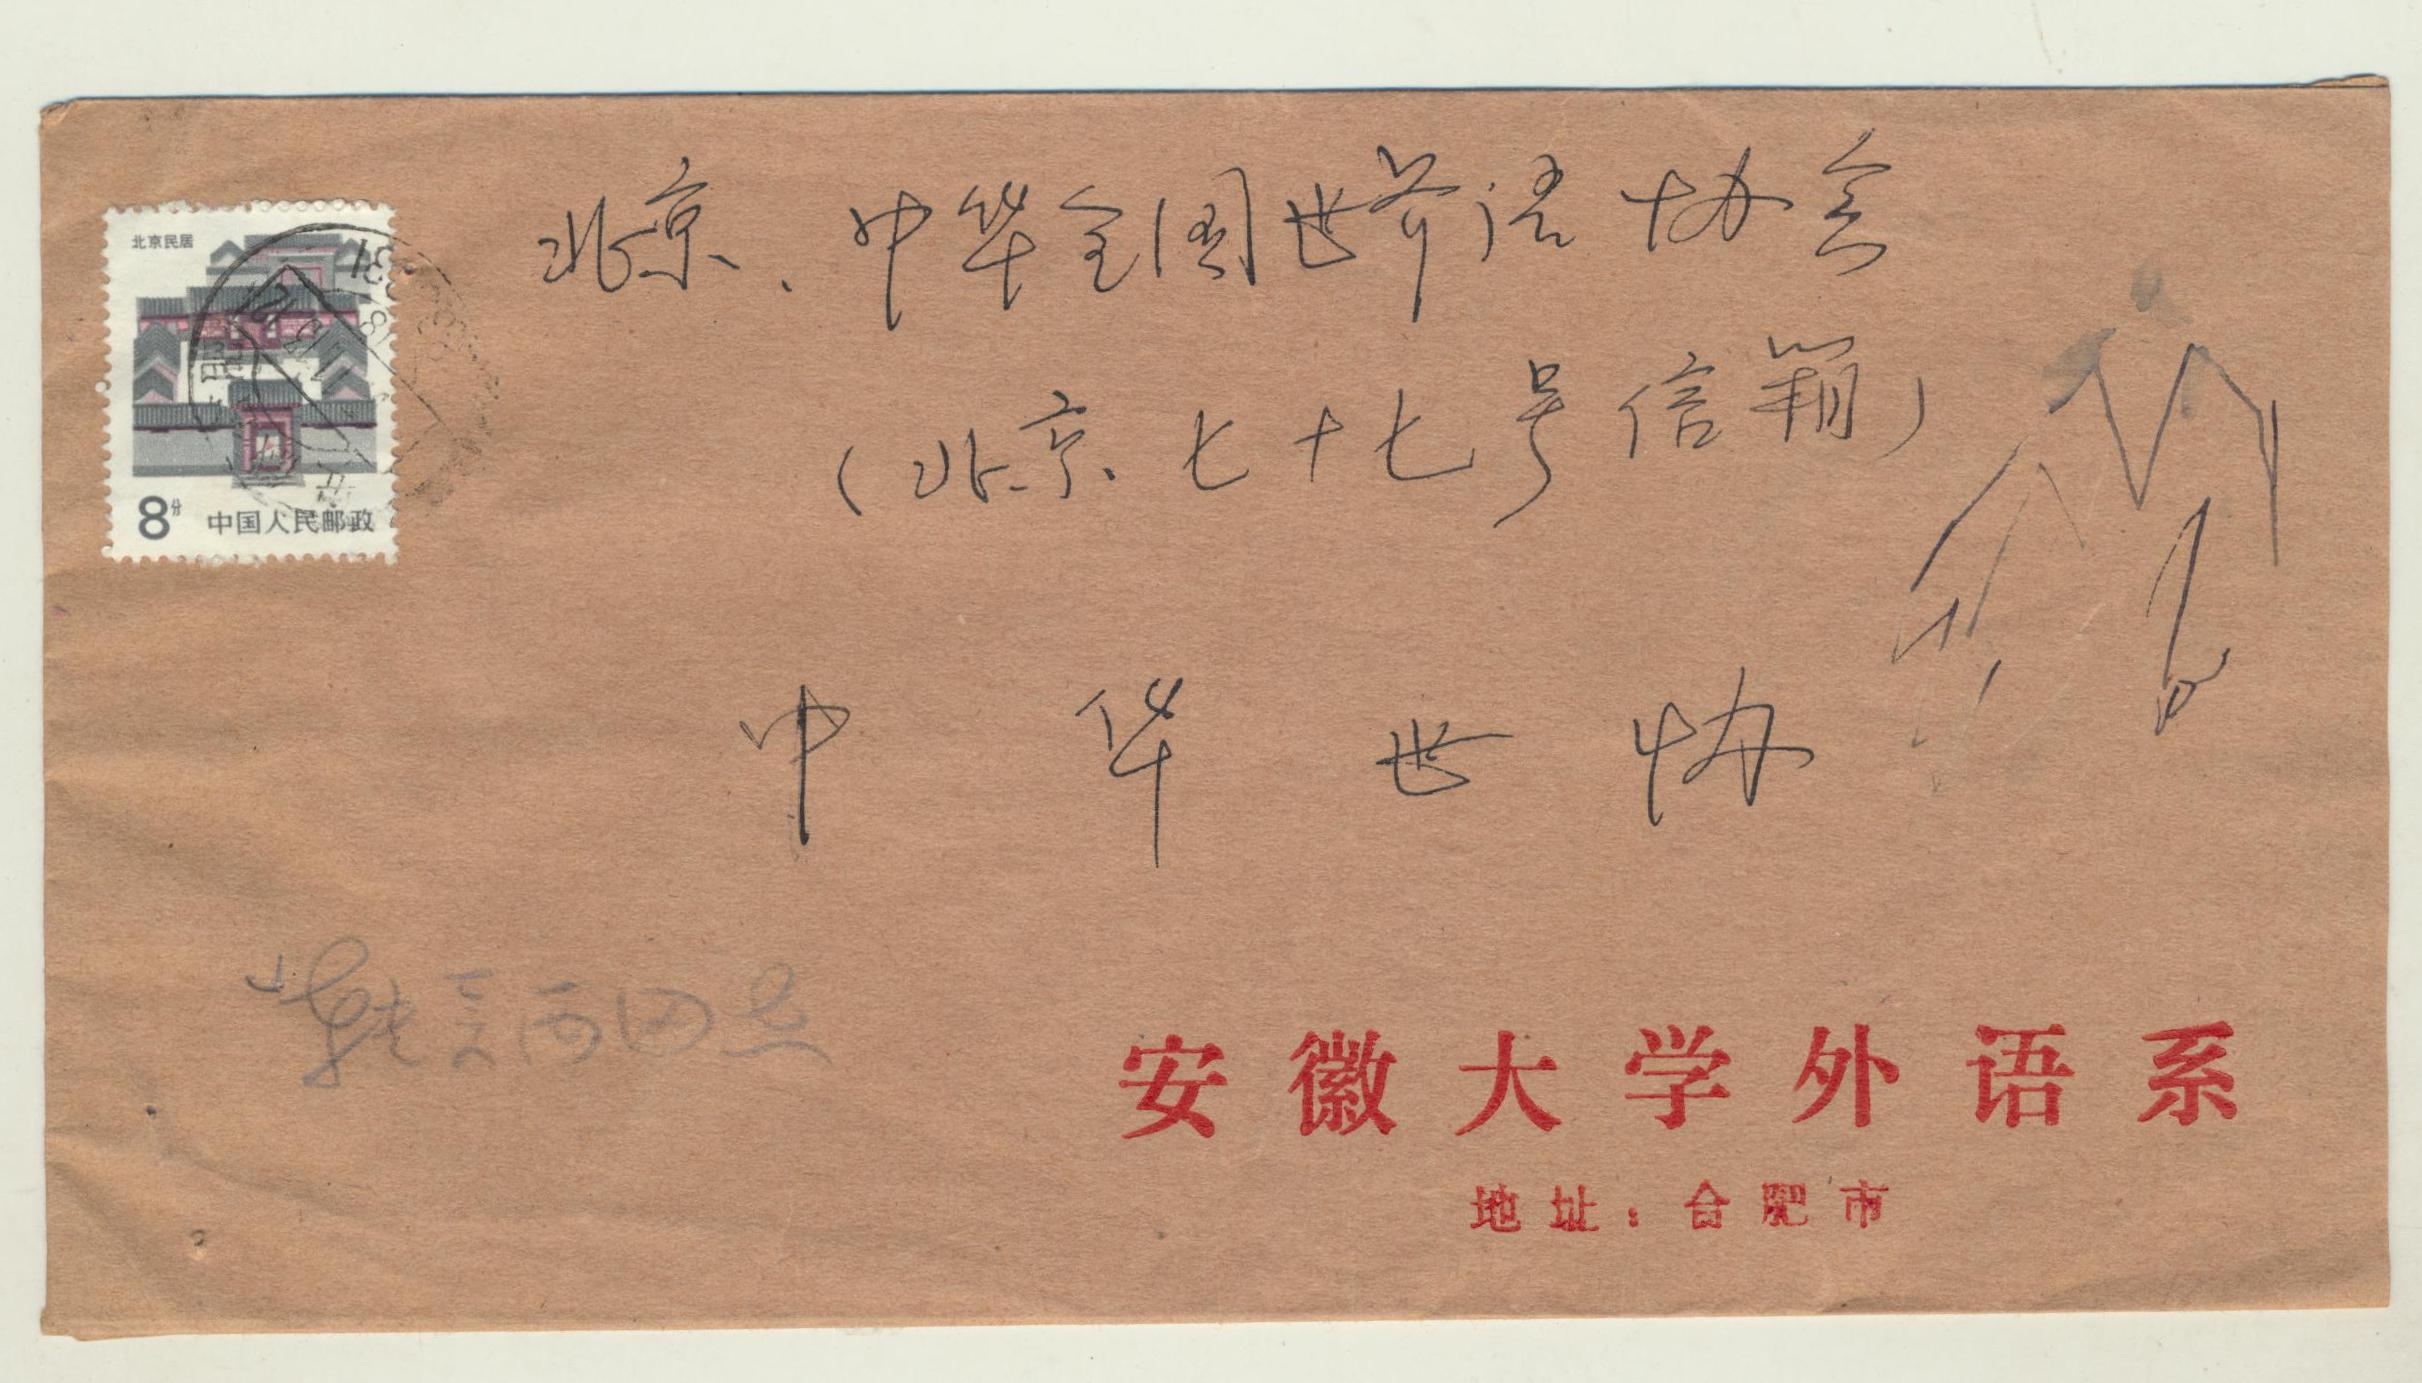 北京民居
8分 中国人民邮政
北京、中华全国世界语协会
（北京七十七号信箱）
中华世协
安徽大学外语系
地址：合肥市